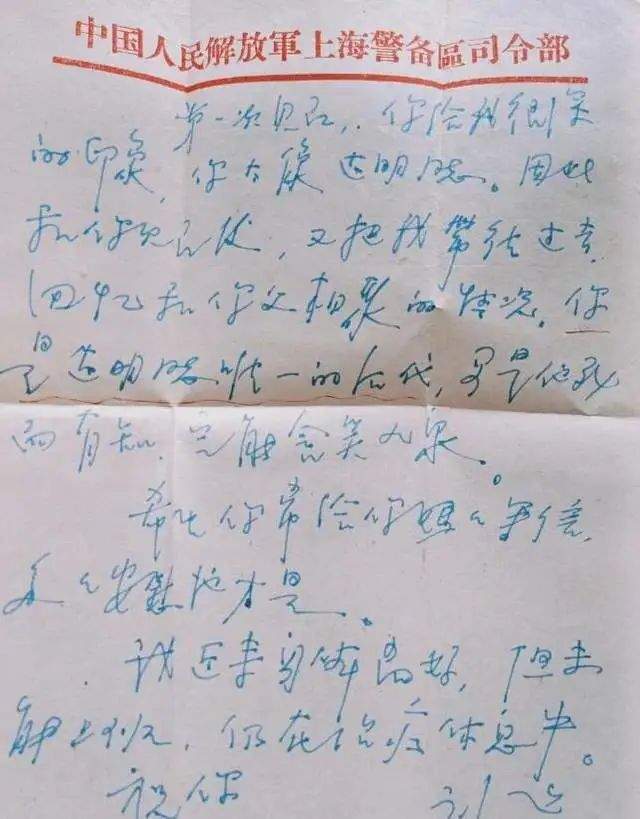 中国人民解放軍上海警备區司令部
第一次见面，你给我很深
的印象，你太像达明同志。因此
和你见面后，又把我带往过去
回忆和你父相聚的情况。你
是达明同志唯一的后代，若是他死
而有知，定能含笑九泉。
希望你常给你妈妈写信，
多多安慰他才是。
我近来身体尚好，但未
能上班，仍在治疗休息中。
祝你